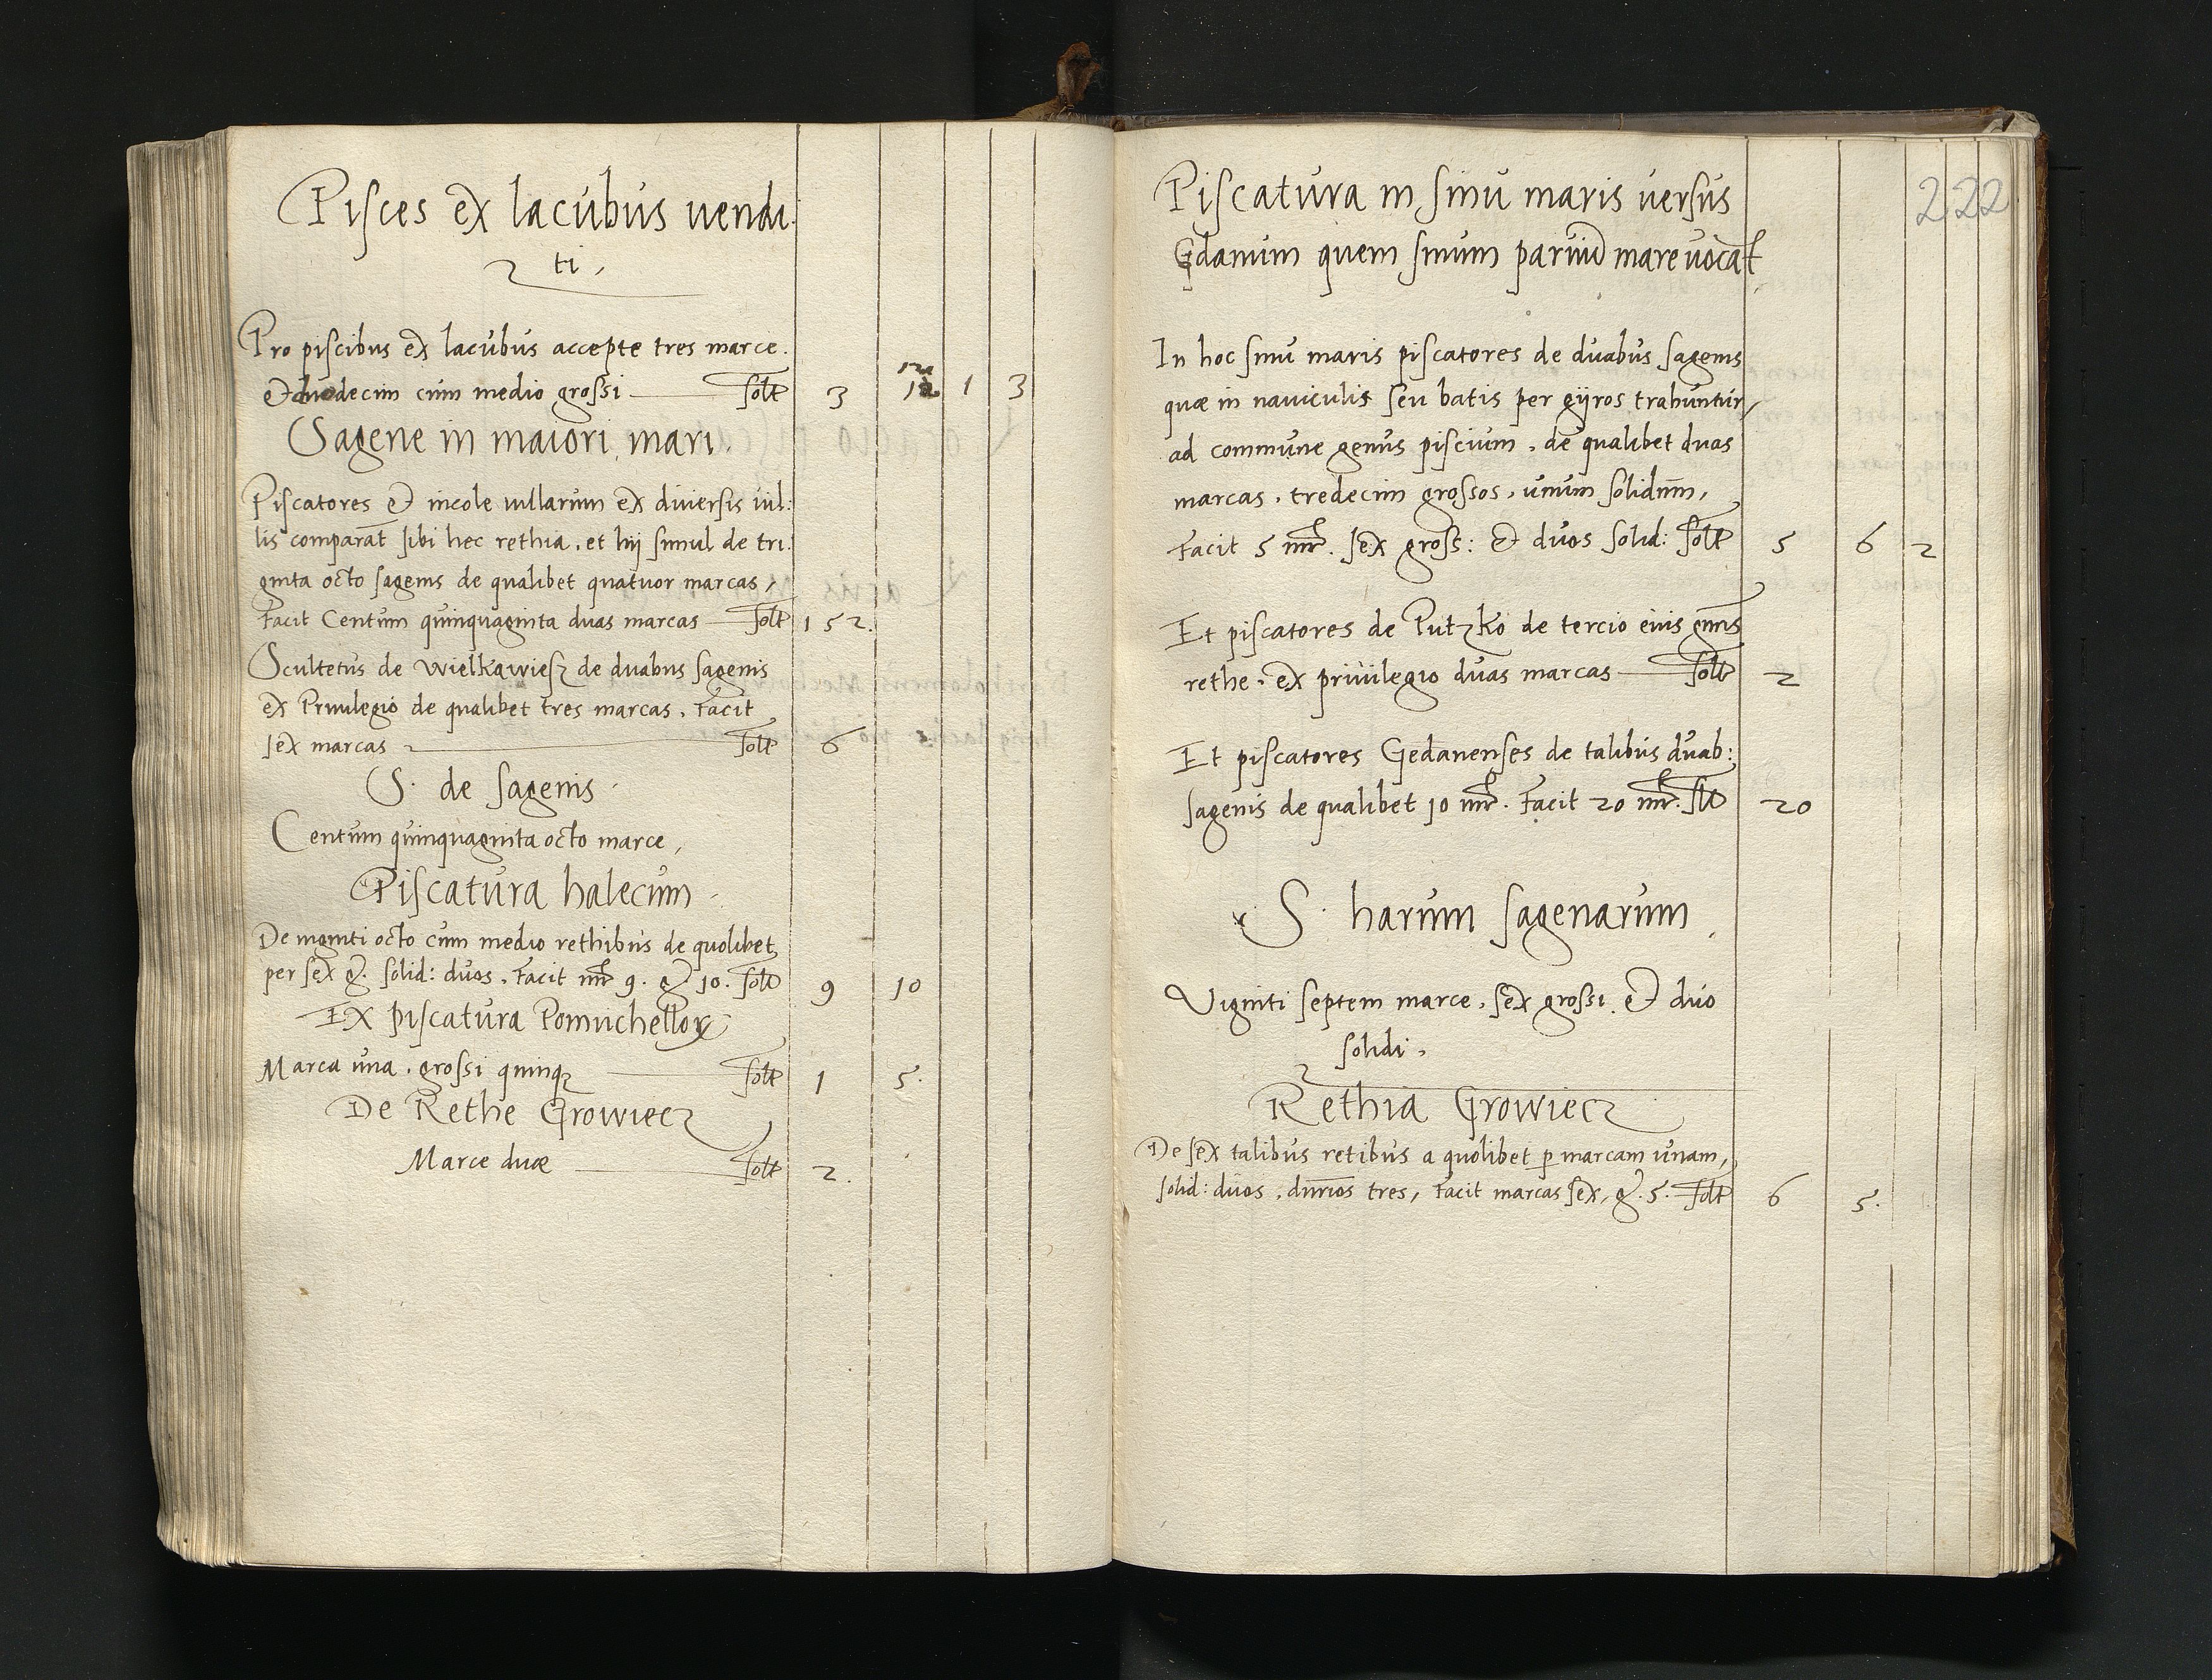 Pisces ex lacubus vendi
ti,
Pro piscibus ex lacubus accepte tres marce.
et duodecim cum medio grossi — solt 3 12 1 3
Sagene in maiori mari.
Piscatores et incole villarum ex diversis vil:
lis comparāt sibi hec rethia, et hij simul de tri
ginta octo sagenis de qualibet quatuor marcas,
Facit Centum quinquaginta duas marcas — solt 152.
Scultetus de Wielkawiesz de duabus sagenis
ex Privilegio de qualibet tres marcas, Facit
sex marcas — solt 6
S. de sagenis
Centum quinquaginta octo marce,
Piscatura halecum
De viginti octo cum medio rethibus de quolibet
per sex g. solid: duos, Facit mr 9. g 10. solt 9 10
Ex piscatura Pomuchellor
Marca una, grossi quinq — solt 1 5.
De Rethe Growiecz
Marce duæ — solt 2.
222
Piscatura in sinu maris versus
Gdanum quem sinum parvū mare vocāt
In hoc sinu maris piscatores de duabus sagenis
quæ in naviculis seu batis per gyros trahuntur,
ad commune genus piscium, de qualibet duas
marcas, tredecim grossos, unum solidum,
Facit 5 mr. sex gross: et duos solid: solt 5 6 2
Et piscatores de Putzko de tercio eius gñis
rethe, ex privilegio duas marcas — solt 2
Et piscatores Gedanenses de talibus duab:
sagenis de qualibet 10 mr. Facit 20 mr. slt 20
S. harum sagenarum
Viginti septem marce, sex grossi et duo
solidi,
Rethia Growiecz
De sex talibus retibus a quolibet p marcam unam,
solid: duos, dnrios tres, Facit marcas sex, g. 5. solt 6 5.